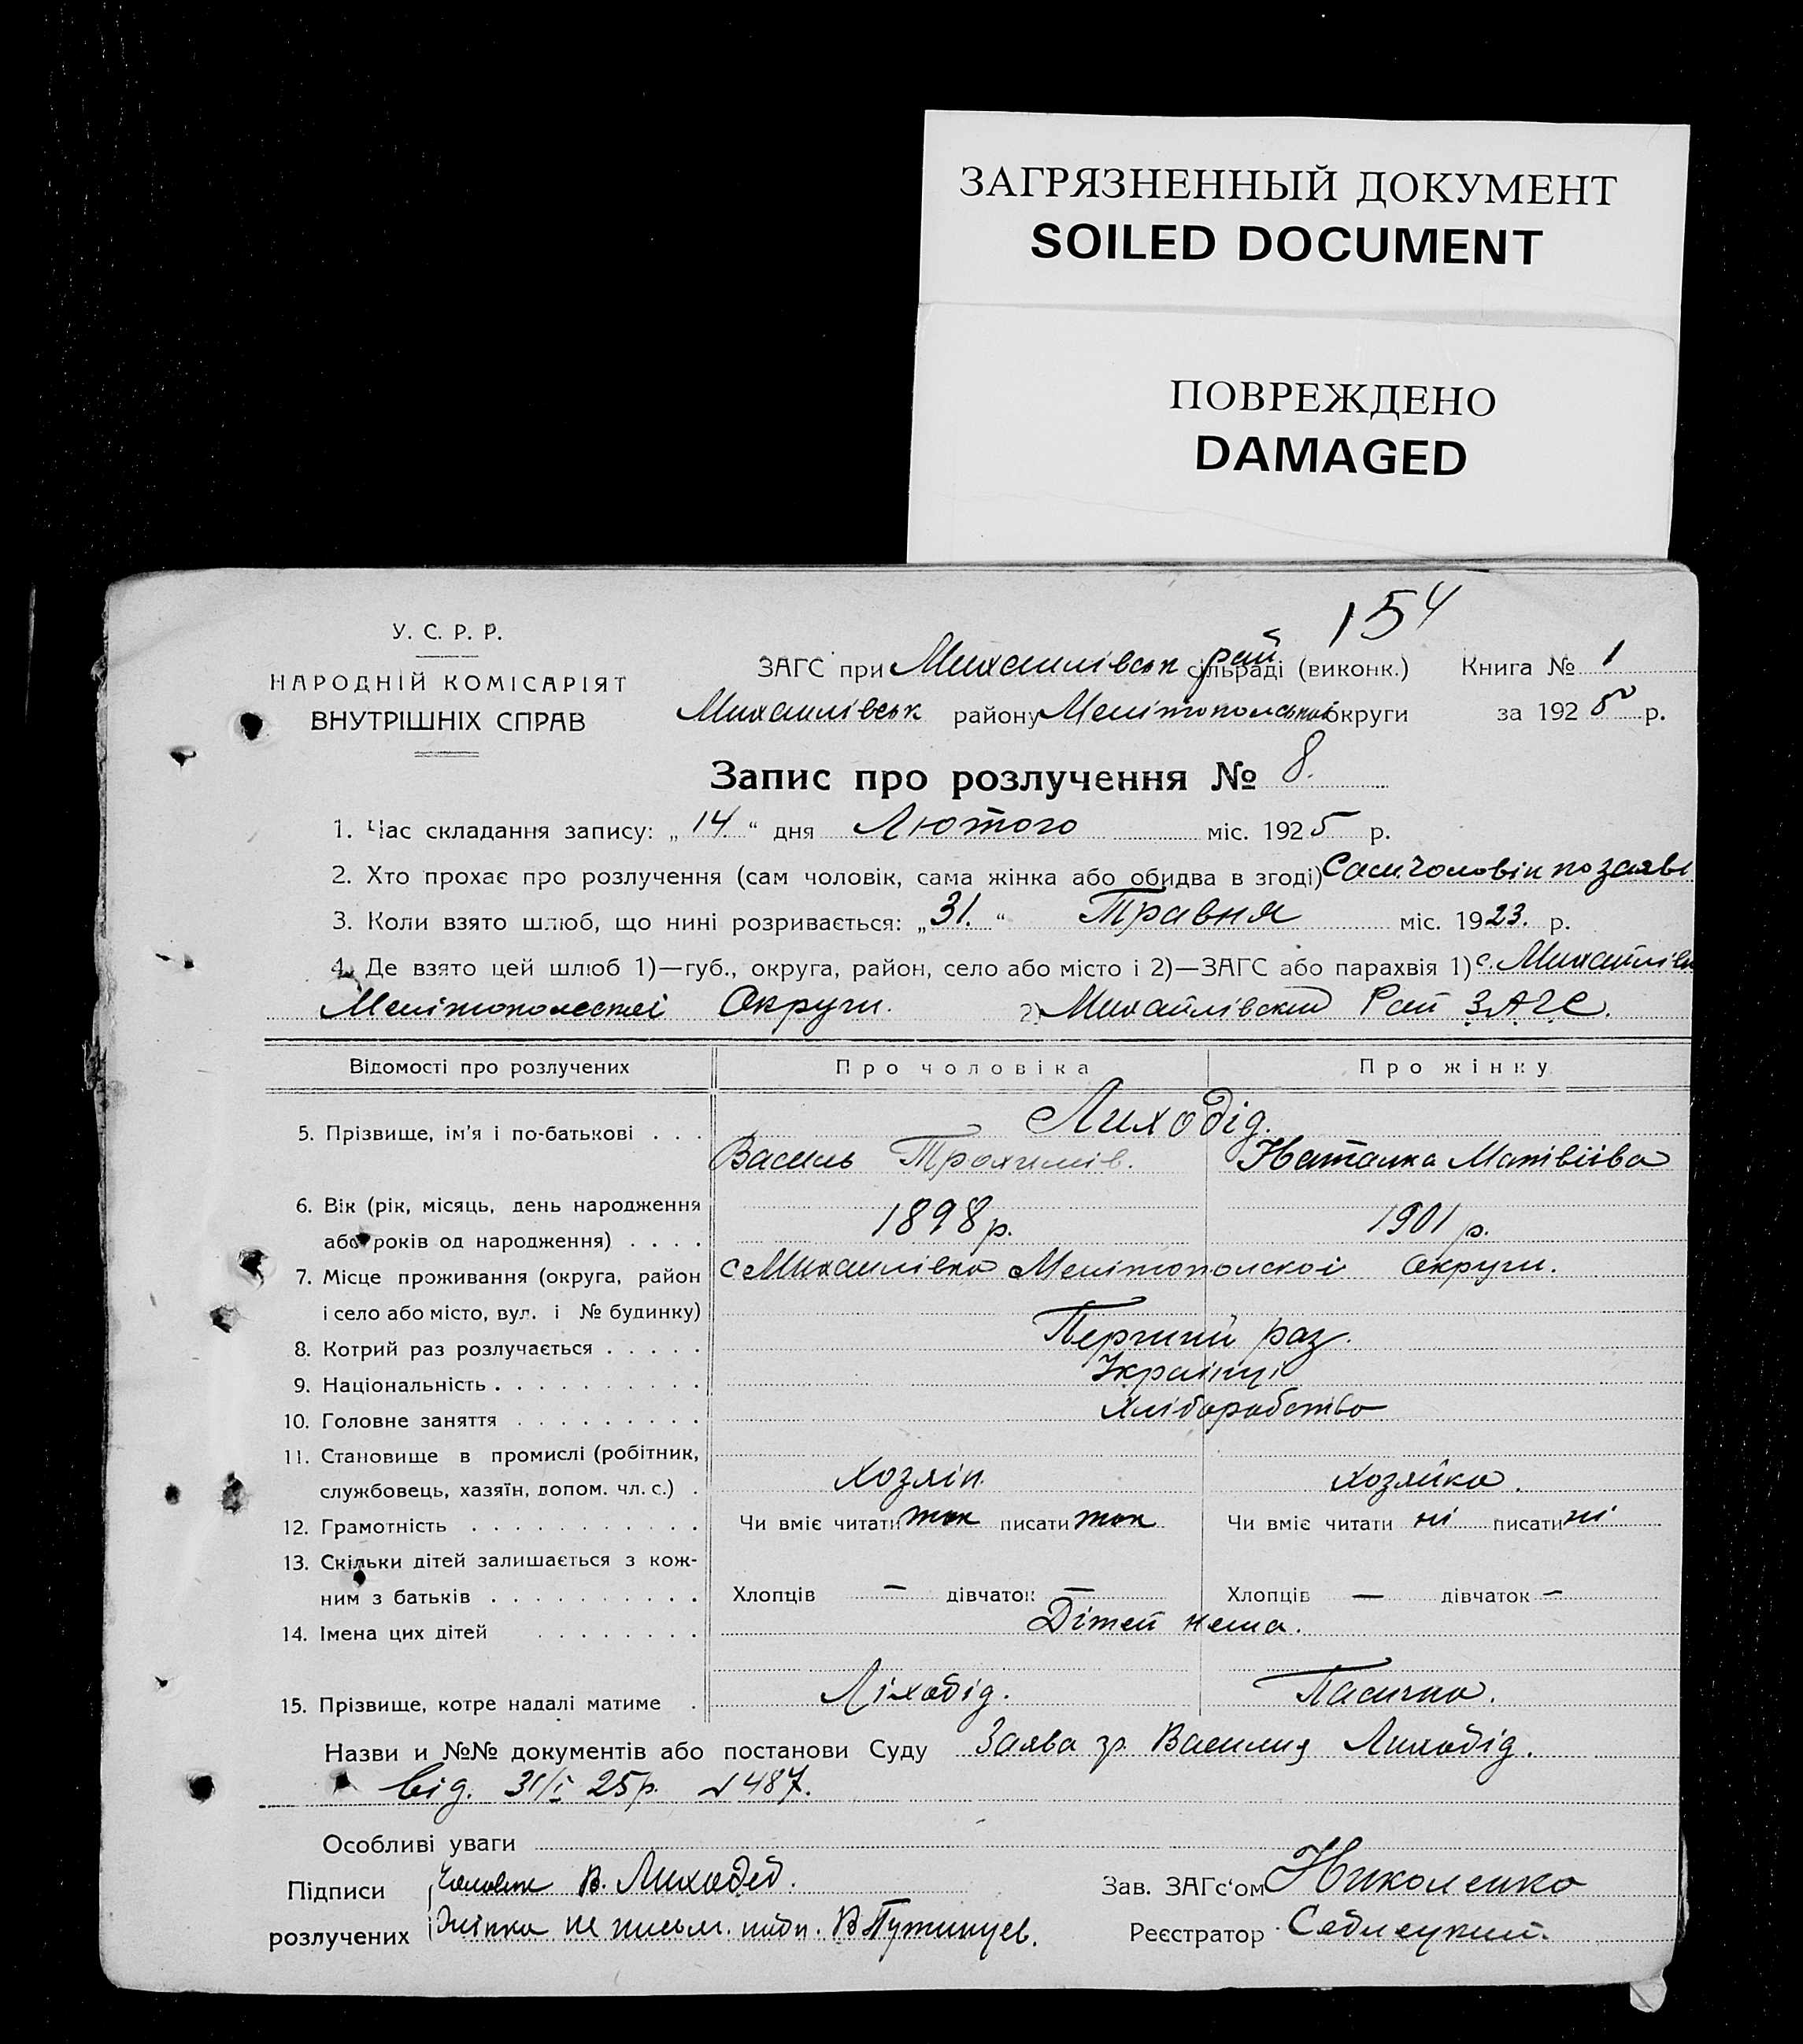 ЗАГРЯЗНЕННЫЙ ДОКУМЕНТ
SOILED DOCUMENT
ПОВРЕЖДЕНО
DAMAGED
154
У. С. Р. Р.
НАРОДНІЙ КОМІСАРІЯТ
ВНУТРІШНІХ СПРАВ
ЗАГС при Михайлівськ рай сільраді (виконк.) Книга № 1
Михаилівськ району Мелітопольської округи за 1925 р.
Запис про розлучення № 8.
1. Час складання запису: „14“ дня Лютого міс. 1925 р.
2. Хто прохає про розлучення (сам чоловік, сама жінка або обидва в згоді) Сам чоловік по заяві
3. Коли взято шлюб, що нині розривається: „31.“ Травня міс. 1923. р.
4. Де взято цей шлюб 1)—губ., округа, район, село або місто і 2)—ЗАГС або парахвія 1) с. Михайлівка
Мелітополської Округи. 2) Михайлівский Рай ЗАГС.
Відомості про розлучених Про чоловіка Про жінку
5. Прізвище, ім'я і по-батькові . . . Лиходід.
Василь Трохимів. Наталка Матвіїва
6. Вік (рік, місяць, день народження
або років од народження) . . . . 1898 р. 1901 р.
7. Місце проживання (округа, район с Михаилівка Мелітополскоі округи.
і село або місто, вул. і № будинку)
8. Котрий раз розлучається . . . . . Перший раз.
9. Національність . . . . . . . . . . Українці
10. Головне заняття . . . . . . . . . Хліборобство
11. Становище в промислі (робітник,
службовець, хазяїн, допом. чл. с.) . Хозяін. Хозяйка.
12. Грамотність . . . . . . . . . . . Чи вміє читати так писати так Чи вміє читати ні писати ні
13. Скільки дітей залишається з кож-
ним з батьків . . . . . . . . . . Хлопців — дівчаток — Хлопців — дівчаток —
14. Імена цих дітей . . . . . . . . Дітей нема.
15. Прізвище, котре надалі матиме . Ліходід. Пасична.
Назви и №№ документів або постанови Суду Заява гр. Василия Лиходід.
від. 31/I 25 р. № 487.
Особливі уваги
Підписи Чоловік В. Лиходед. Зав. ЗАГс'ом Николенко
розлучених Жінка не письм. підп. В Путинцев. Реєстратор